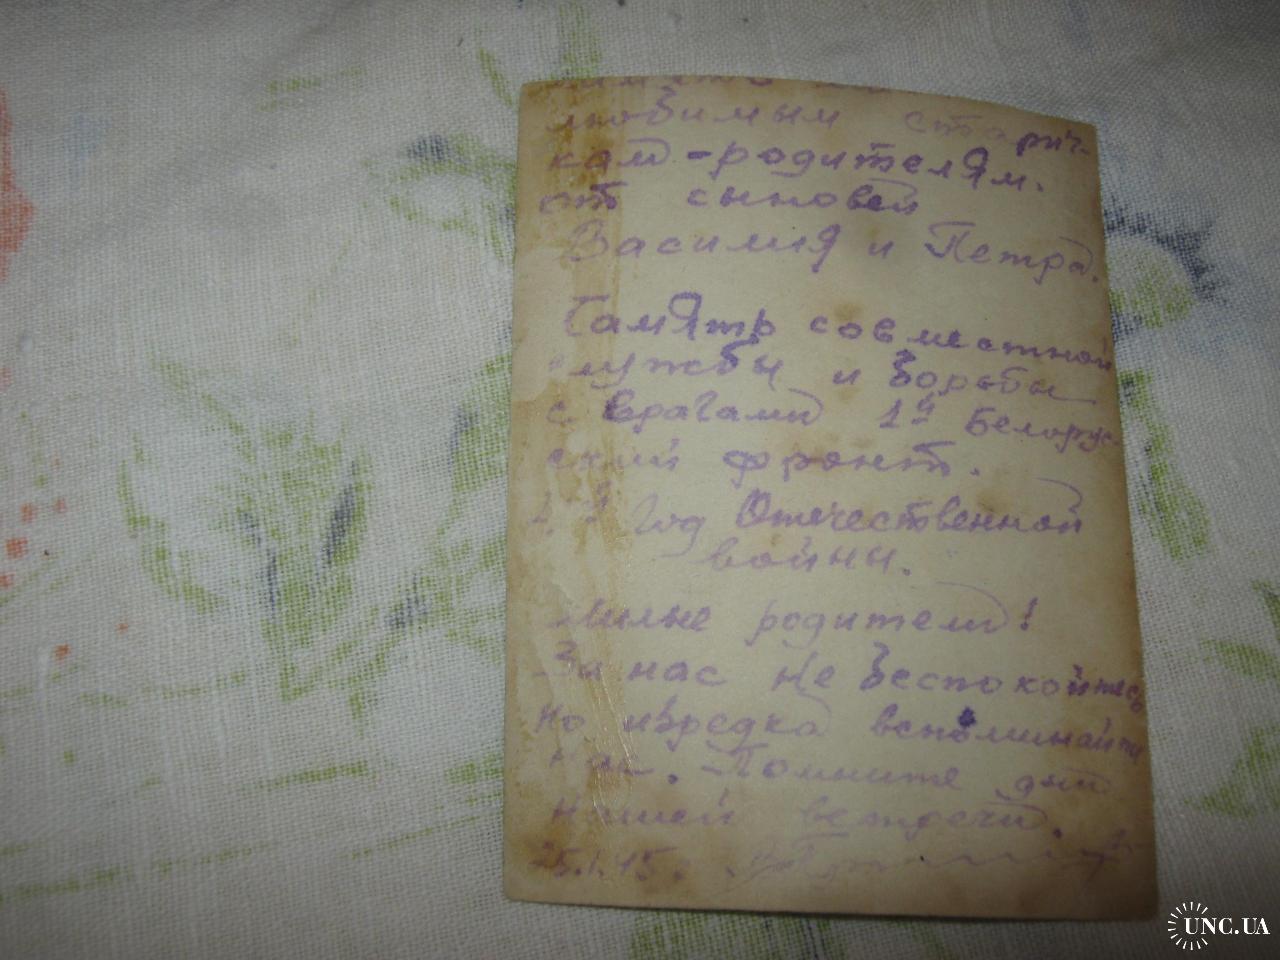 любимым старич-
кам-родителям.
от сыновей
Василия и Петра.
Память совместной
службы и борьбы
с врагами 1й Белорус-
ский фронт.
й год Отечественной
войны.
Милые родители!
За нас не беспокойтесь
но изредка вспоминайте
нас. - Помните дни
нашей встречи.
25.I.45.
UNC.UA